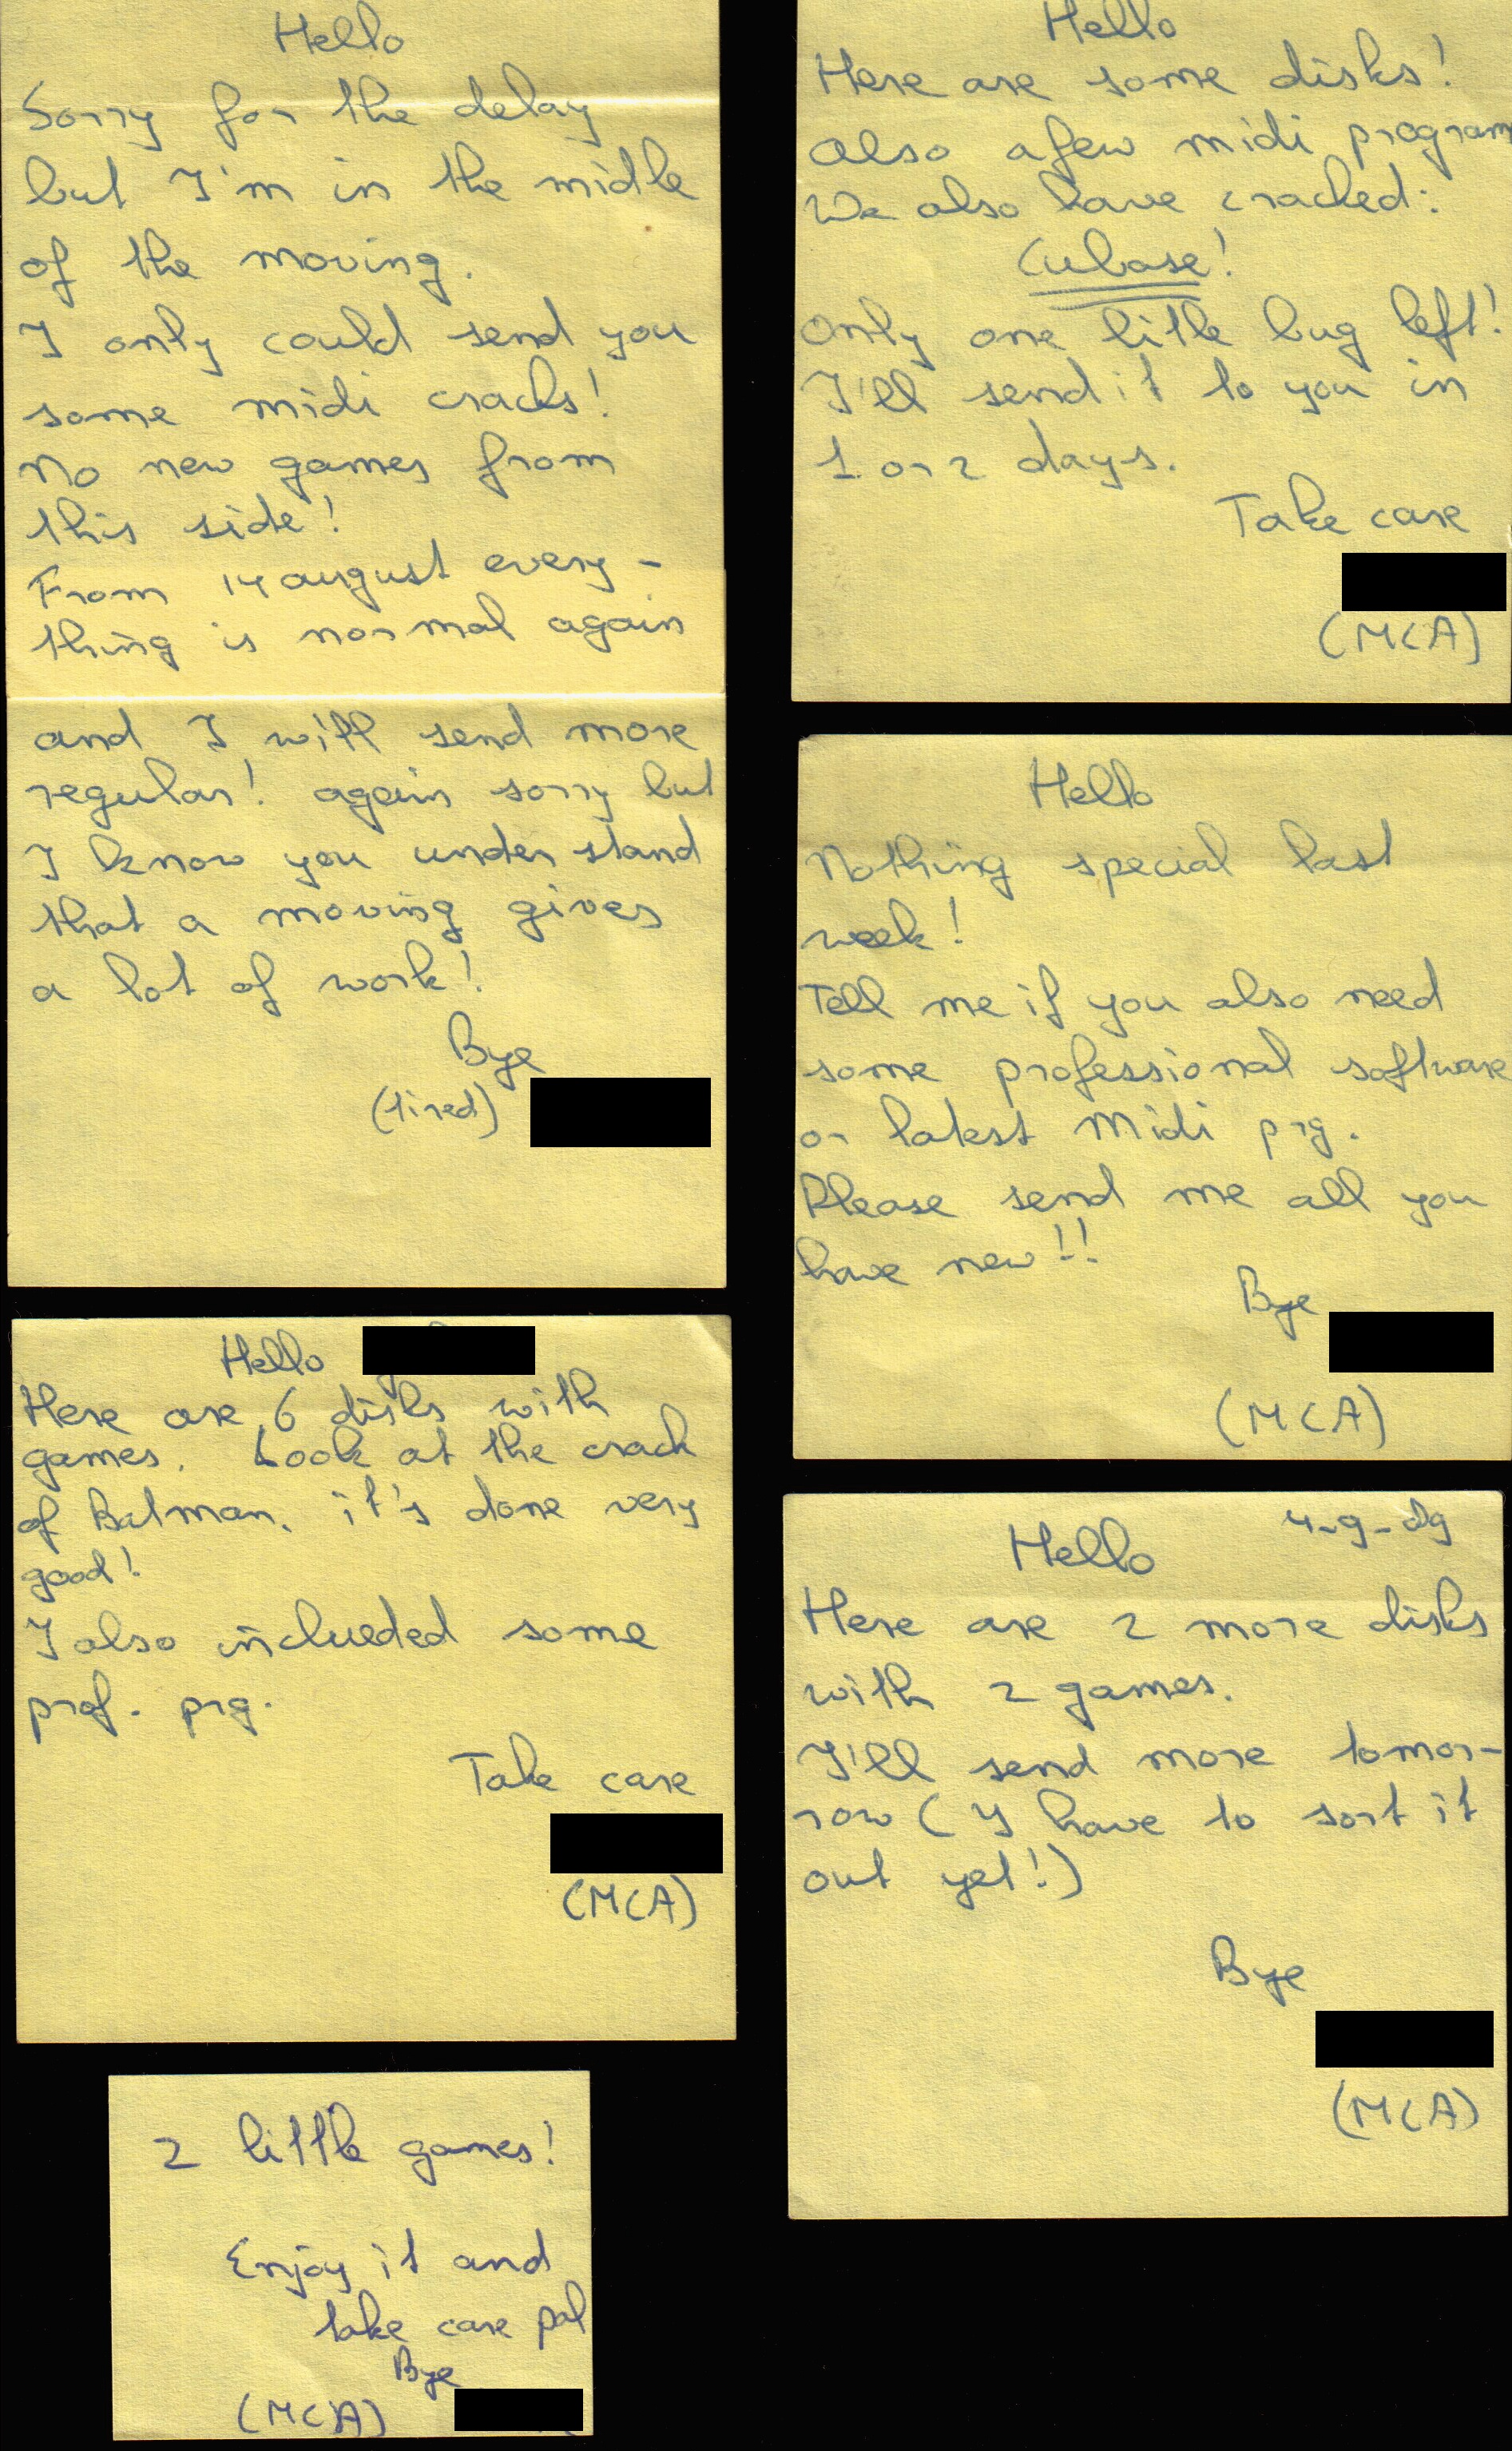 Hello
Sorry for the delay
but I'm in the midle
of the moving.
I only could send you
some midi cracks!
No new games from
this side!
From 14 august every-
thing is normal again
and I will send more
regular! again sorry but
I know you under stand
that a moving gives
a lot of work!
Bye
(tired)
Hello
Here are 6 disks with
games. Look at the crack
of Batman. it's done very
good!
I also inclueded some
prof. prg.
Take care
(MCA)
2 little games!
Enjoy it and
take care pal
Bye
(MCA)
Hello
Here are some disks!
Also a few midi program
We also have cracked:
Cubase!
Only one little bug left!
I'll send it to you in
1 or 2 days.
Take care
(MCA)
Hello
Nothing special last
week!
Tell me if you also need
some professional software
or latest Midi prg.
Please send me all you
have new!!
Bye
(MCA)
Hello 4-9-89
Here are 2 more disks
with 2 games.
I'll send more tomor-
row (I have to sort it
out yet!)
Bye
(MCA)